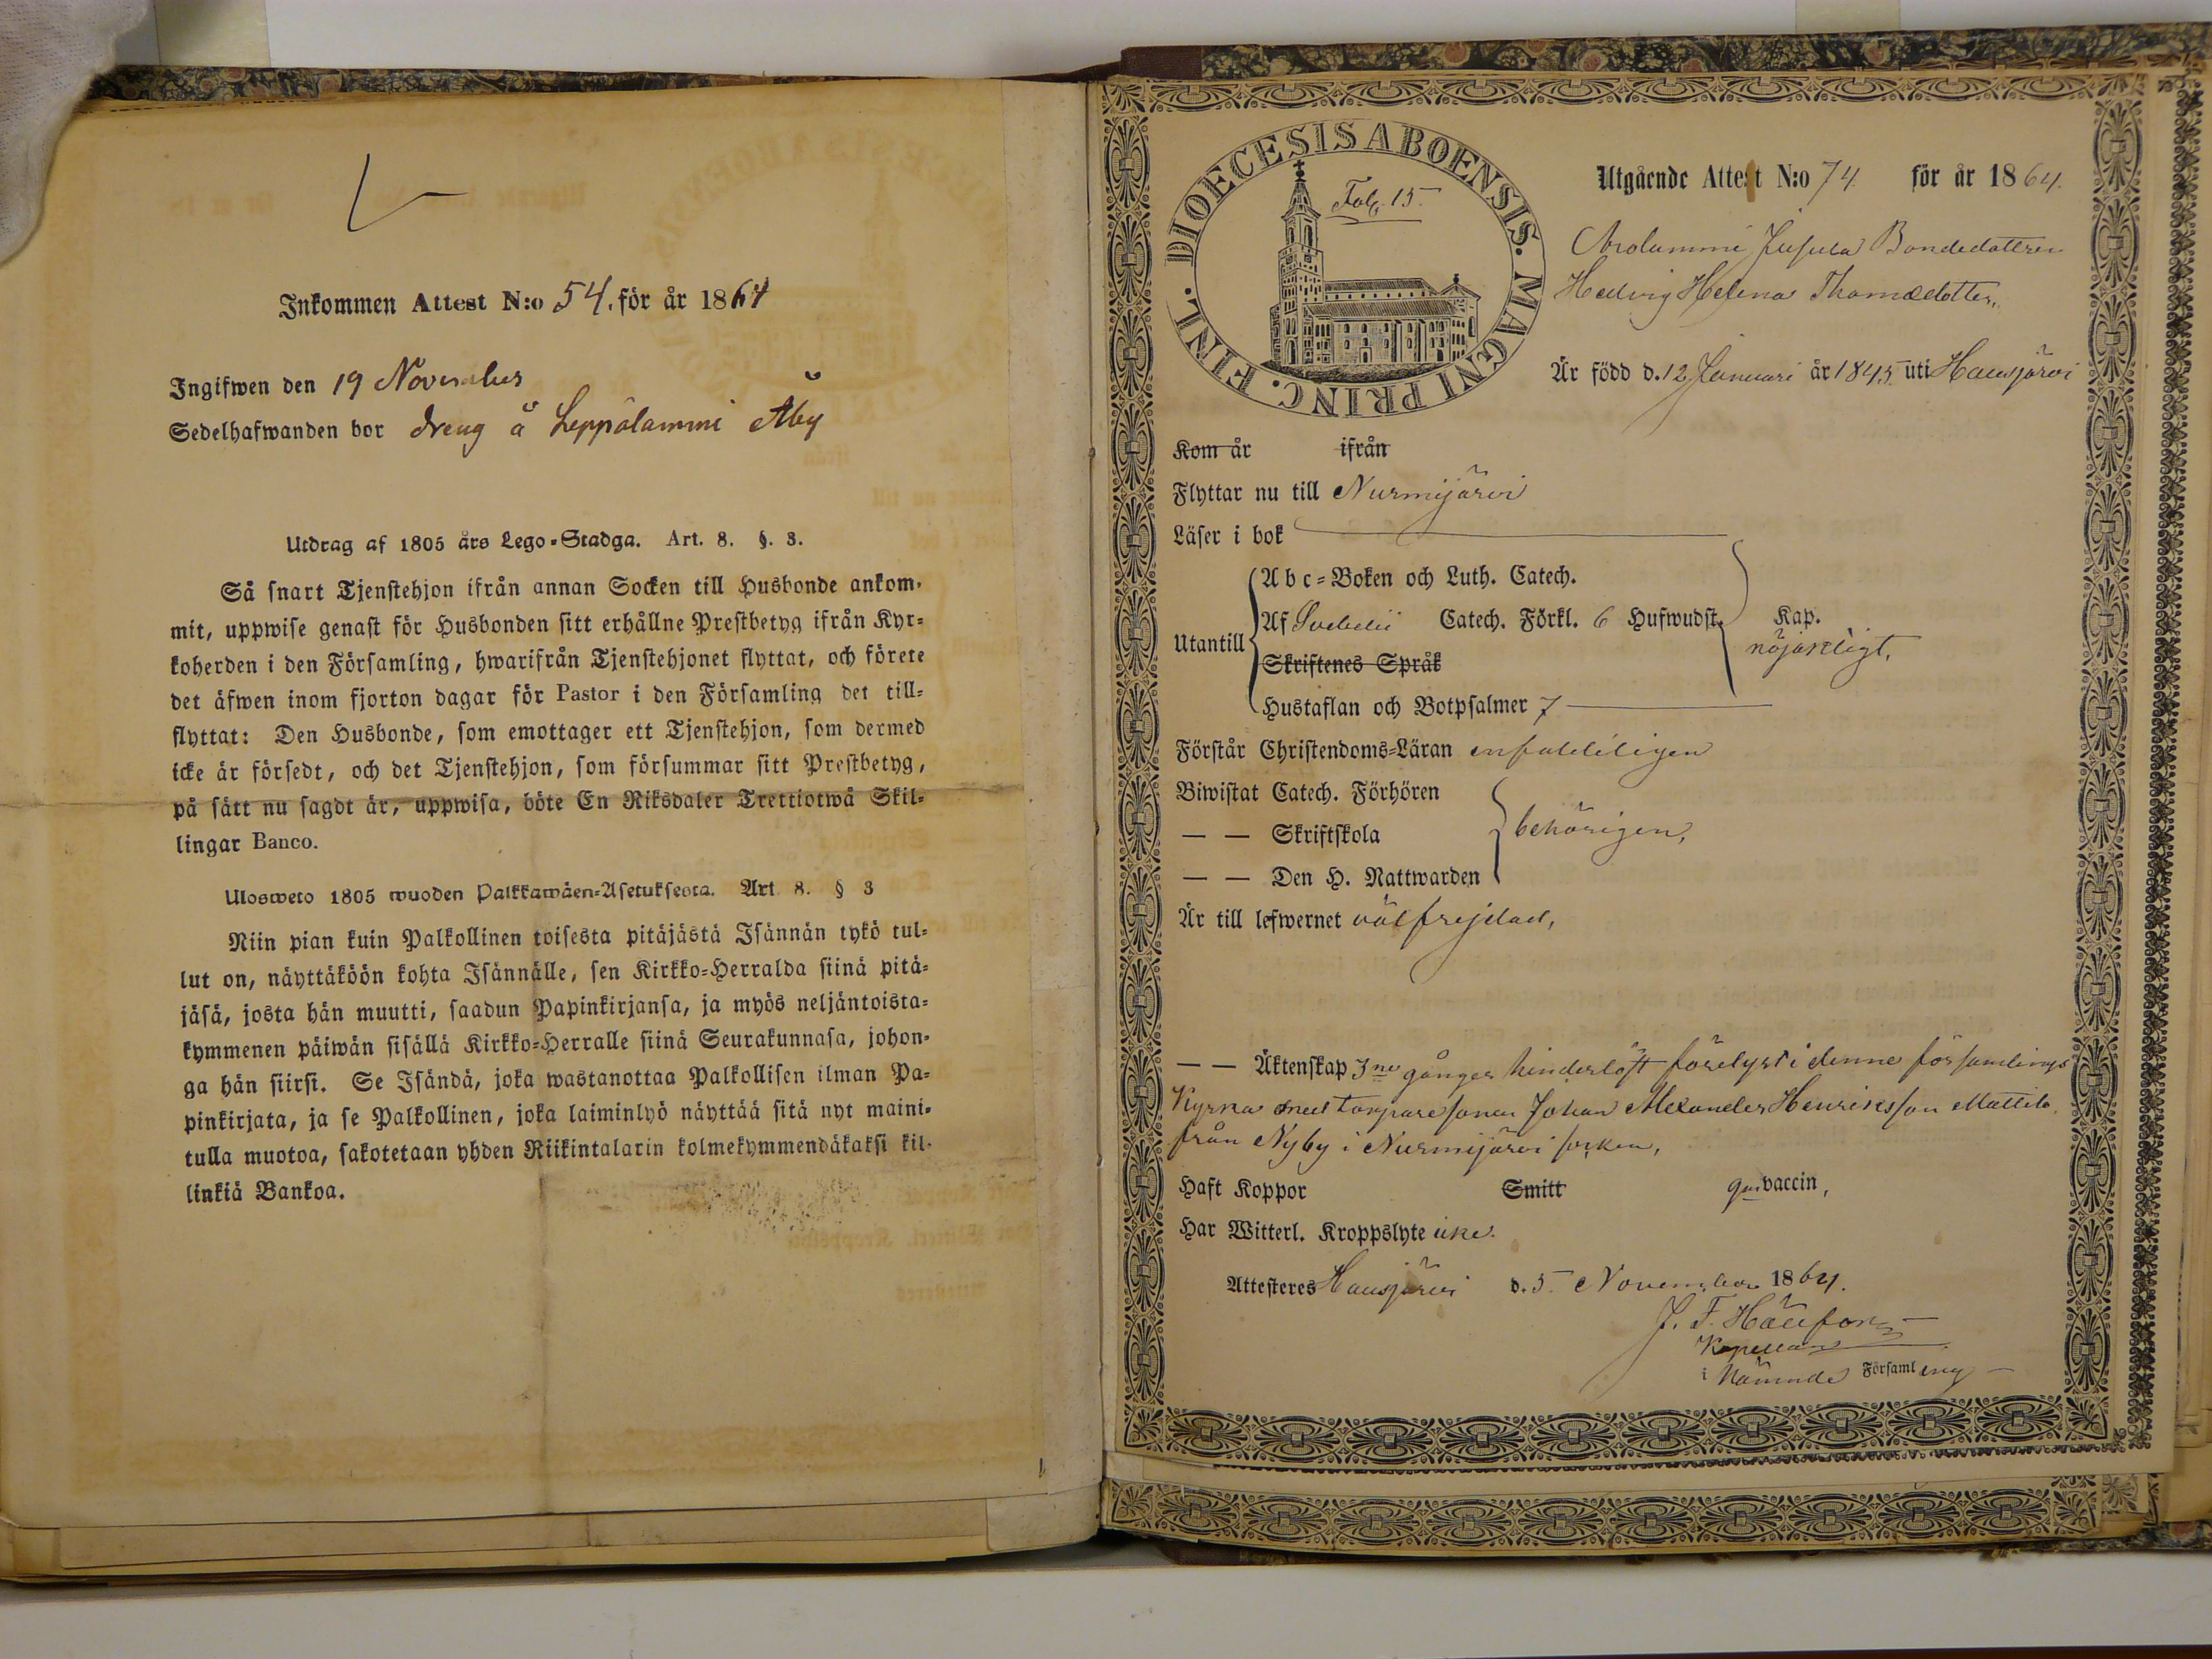 Inkommen Attest N:o 54. för år 1864
Ingifwen den 19 November
Sedelhafwanden bor dreng å Leppälammi Åby
Utdrag af 1805 års Lego-Stadga. Art. 8. §. 3.
Så snart Tjenstehjon ifrån annan Socken till Husbonde ankom-
mit, uppwise genast för Husbonden sitt erhållne Prestbetyg ifrån Kyr-
koherden i den Församling, hwarifrån Tjenstehjonet flyttat, och förete
det äfwen inom fjorton dagar för Pastor i den Församling det till-
flyttat: Den Husbonde, som emottager ett Tjenstehjon, som dermed
icke är försedt, och det Tjenstehjon, som försummar sitt Prestbetyg,
på sätt nu sagdt är, uppwisa, böte En Riksdaler Trettiotwå Skil-
lingar Banco.
Ulosweto 1805 wuoden Palkkawäen-Asetuksesta. Art 8. § 3
Niin pian kuin Palkollinen toisesta pitäjästä Isännän tykö tul-
lut on, näyttäköön kohta Isännälle, sen Kirkko-Herralda siinä pitä-
jäsä, josta hän muutti, saadun Papinkirjansa, ja myös neljäntoista-
kymmenen päiwän sisällä Kirkko-Herralle siinä Seurakunnasa, johon-
ga hän siirsi. Se Isändä, joka wastanottaa Palkollisen ilman Pa-
pinkirjata, ja se Palkollinen, joka laiminlyö näyttää sitä nyt maini-
tulla muotoa, sakotetaan yhden Riikintalarin kolmekymmendäkaksi kil-
linkiä Bankoa.
DIOECESIS ABOENSIS. MAGNI PRINC. FINL.
Fol. 15
Utgående Attest N:o 74. för år 1864.
Arolammi Jussila Bondedottren
Hedvig Helena Thomædotter,
Är född d. 12 Januari år 1845 uti Hausjärvi
Kom år ifrån
Flyttar nu till Nurmijärvi
Läser i bok
Utantill
Abc-Boken och Luth. Catech.
Af Svebelii Catech. Förkl. 6 Hufwudst. Kap.
nöjaktigt,
Skriftenes Språk
Hustaflan och Botpsalmer 7
Förstår Christendoms-Läran enfaldeligen
Biwistat Catech. Förhören
— — Skriftskola behörigen,
— — Den H. Nattwarden
Är till lefwernet välfrejdad,
— — Äktenskap 3ne gånger hinderlöst förelyst i denne församlings
Kyrka med torparesonen Johan Alexander Henriksson Mattila
från Nyby i Nurmijärvi socken,
Haft Koppor Smitt vaccin,
Har Witterl. Kroppslyte icke.
Attesteres Hausjärvi d. 5 November 1864.
J. F. Hällfors
Kapellan
i Nämnde Församling